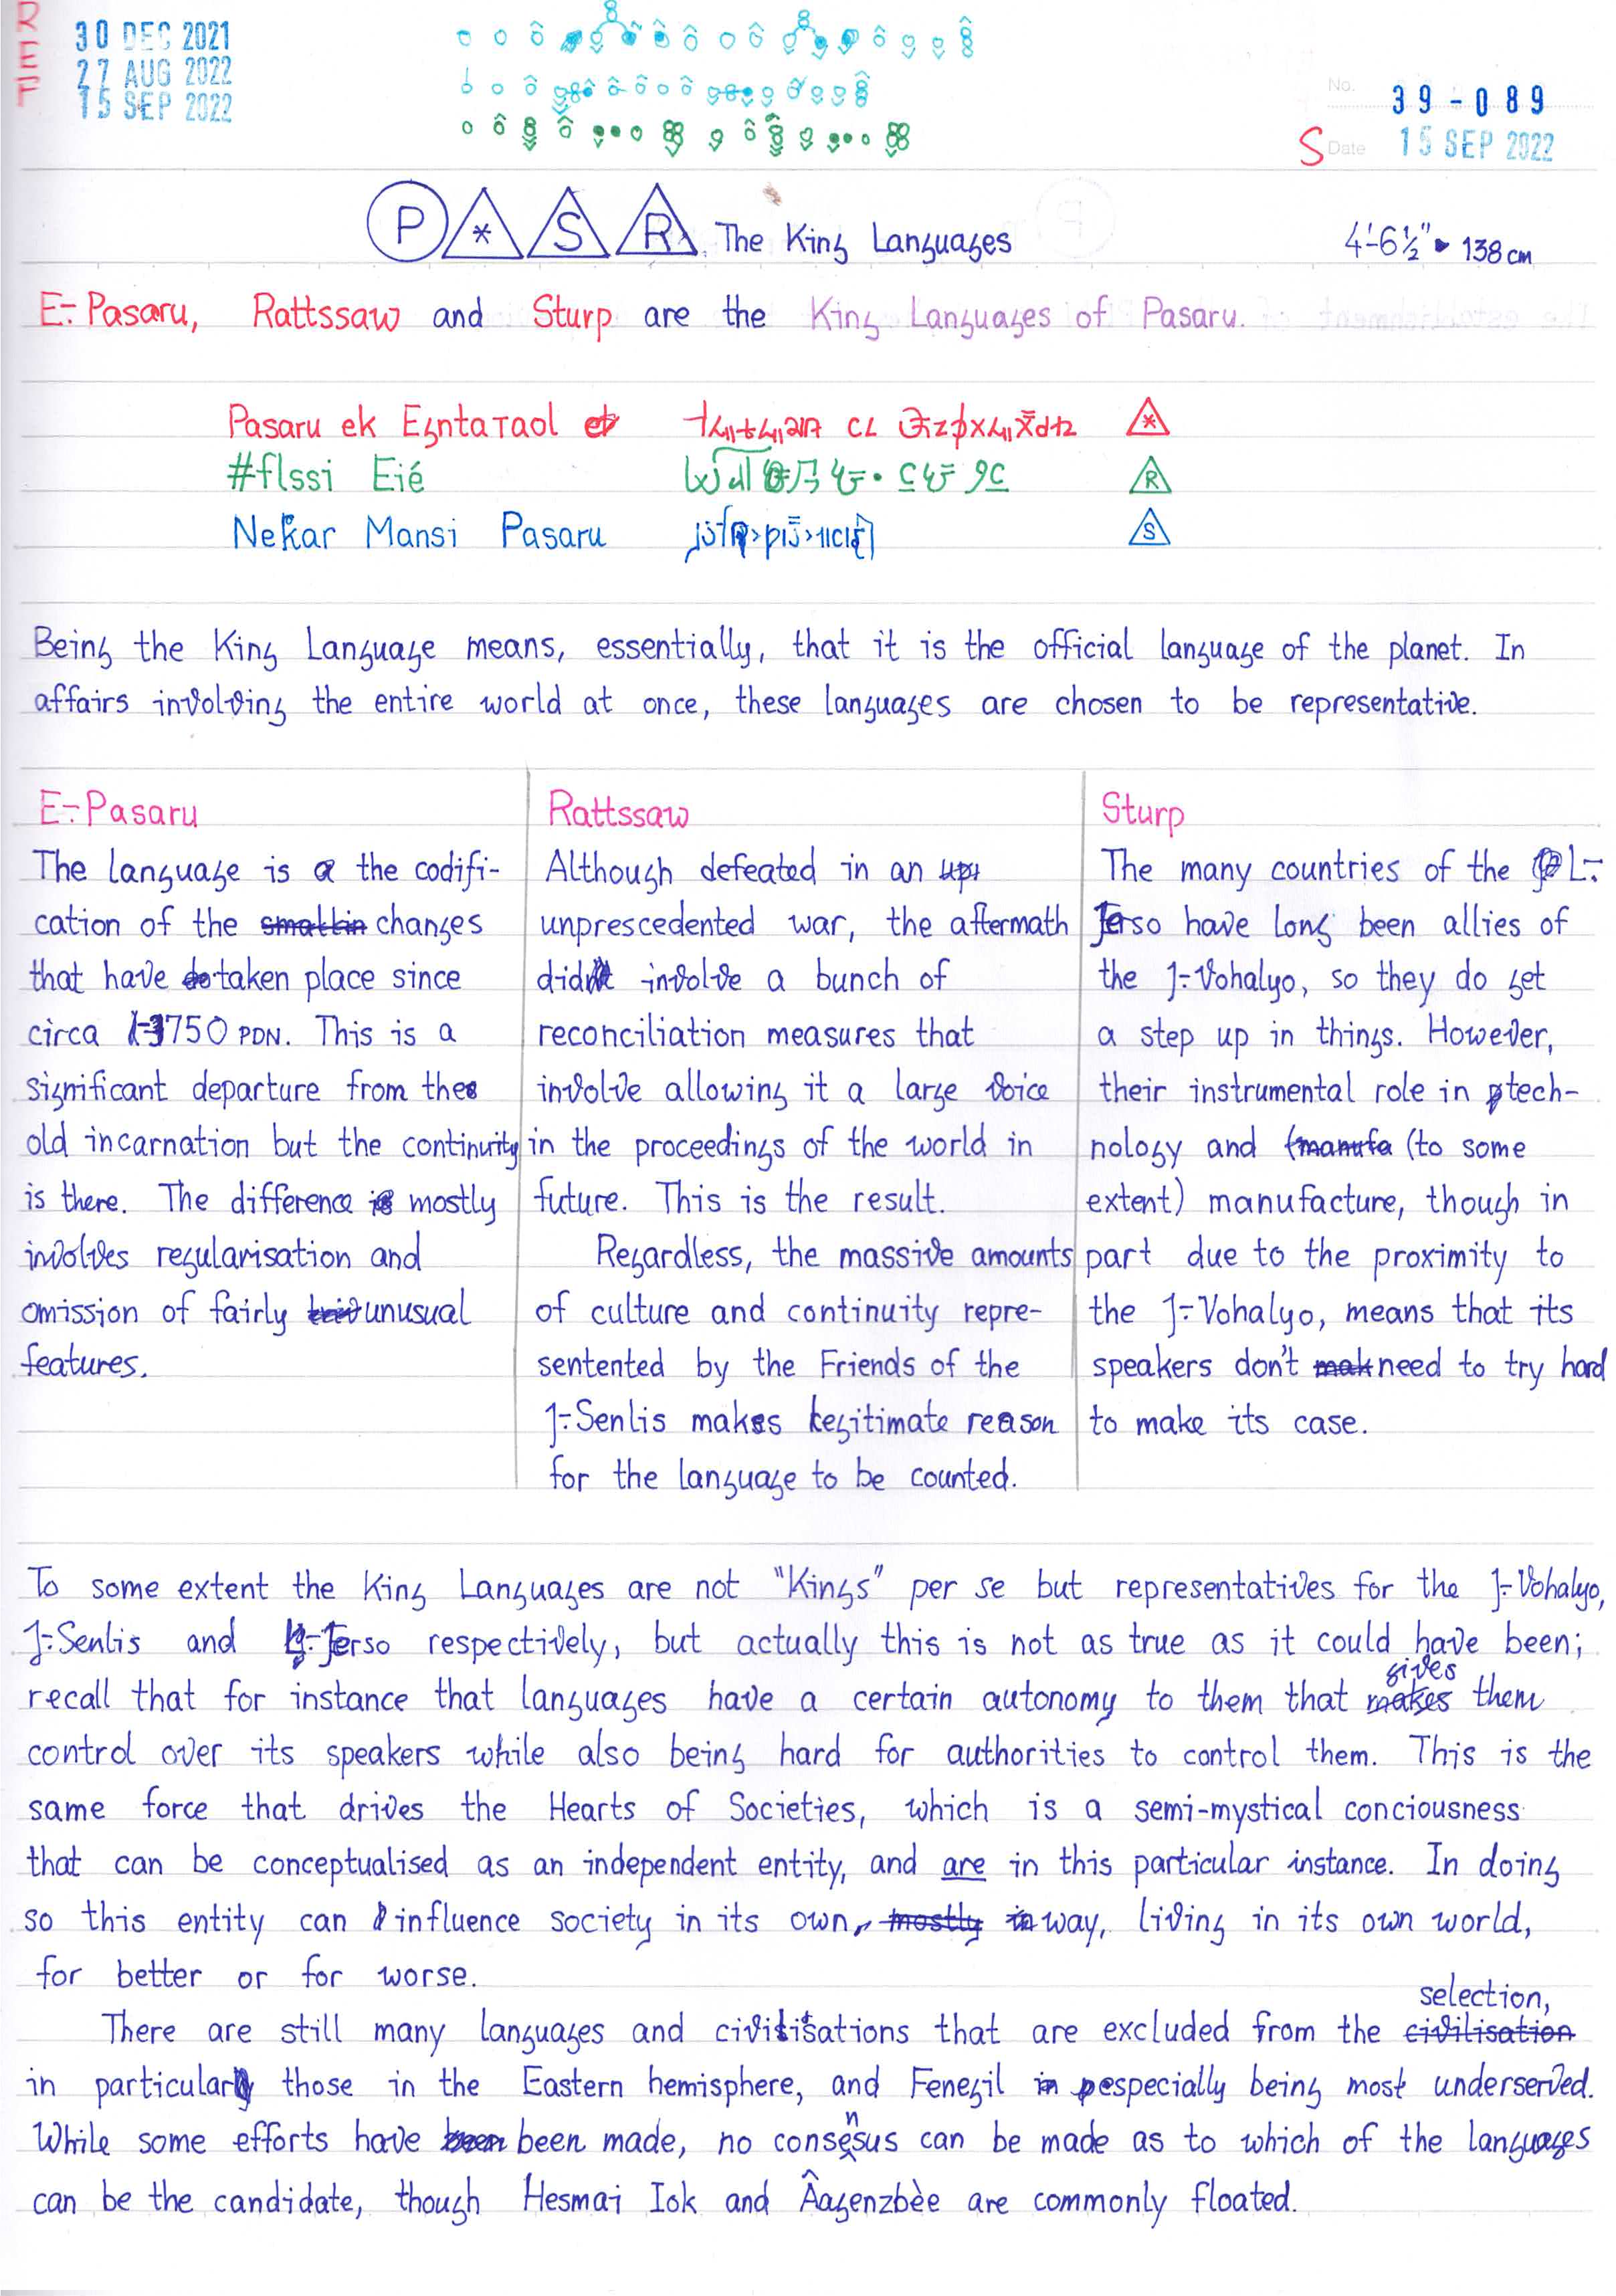 REF
30 DEC 2021
27 AUG 2022
15 SEP 2022
No. 39-089
S Date 15 SEP 2022
P * S R The King Languages
4'-6½" 138 cm
E-Pasaru, Rattssaw and Sturp are the King Languages of Pasaru.
Pasaru ek Egntaтaol
*
#flssi Eié
R
Nekar Mansi Pasaru
S
Being the King Language means, essentially, that it is the official language of the planet. In
affairs involving the entire world at once, these languages are chosen to be representative.
E-Pasaru
The language is the codifi-
cation of the changes
that have taken place since
circa 750 PDN. This is a
significant departure from the
old incarnation but the continuity
is there. The difference mostly
involves regularisation and
omission of fairly unusual
features.
Rattssaw
Although defeated in an
unprescedented war, the aftermath
did involve a bunch of
reconciliation measures that
involve allowing it a large voice
in the proceedings of the world in
future. This is the result.
Regardless, the massive amounts
of culture and continuity repre-
sentented by the Friends of the
J-Senlis makes legitimate reason
for the language to be counted.
Sturp
The many countries of the L-
Jerso have long been allies of
the J-Vohalyo, so they do get
a step up in things. However,
their instrumental role in tech-
nology and (to some
extent) manufacture, though in
part due to the proximity to
the J-Vohalyo, means that its
speakers don't need to try hard
to make its case.
To some extent the King Languages are not "Kings" per se but representatives for the J-Vohalyo,
J-Senlis and L-Jerso respectively, but actually this is not as true as it could have been;
recall that for instance that languages have a certain autonomy to them that gives them
control over its speakers while also being hard for authorities to control them. This is the
same force that drives the Hearts of Societies, which is a semi-mystical conciousness
that can be conceptualised as an independent entity, and are in this particular instance. In doing
so this entity can influence society in its own way, living in its own world,
for better or for worse.
There are still many languages and civilisations that are excluded from the selection,
in particular those in the Eastern hemisphere, and Fenegil especially being most underserved.
While some efforts have been made, no consensus can be made as to which of the languages
can be the candidate, though Hesmai Iok and Âagenzbèe are commonly floated.